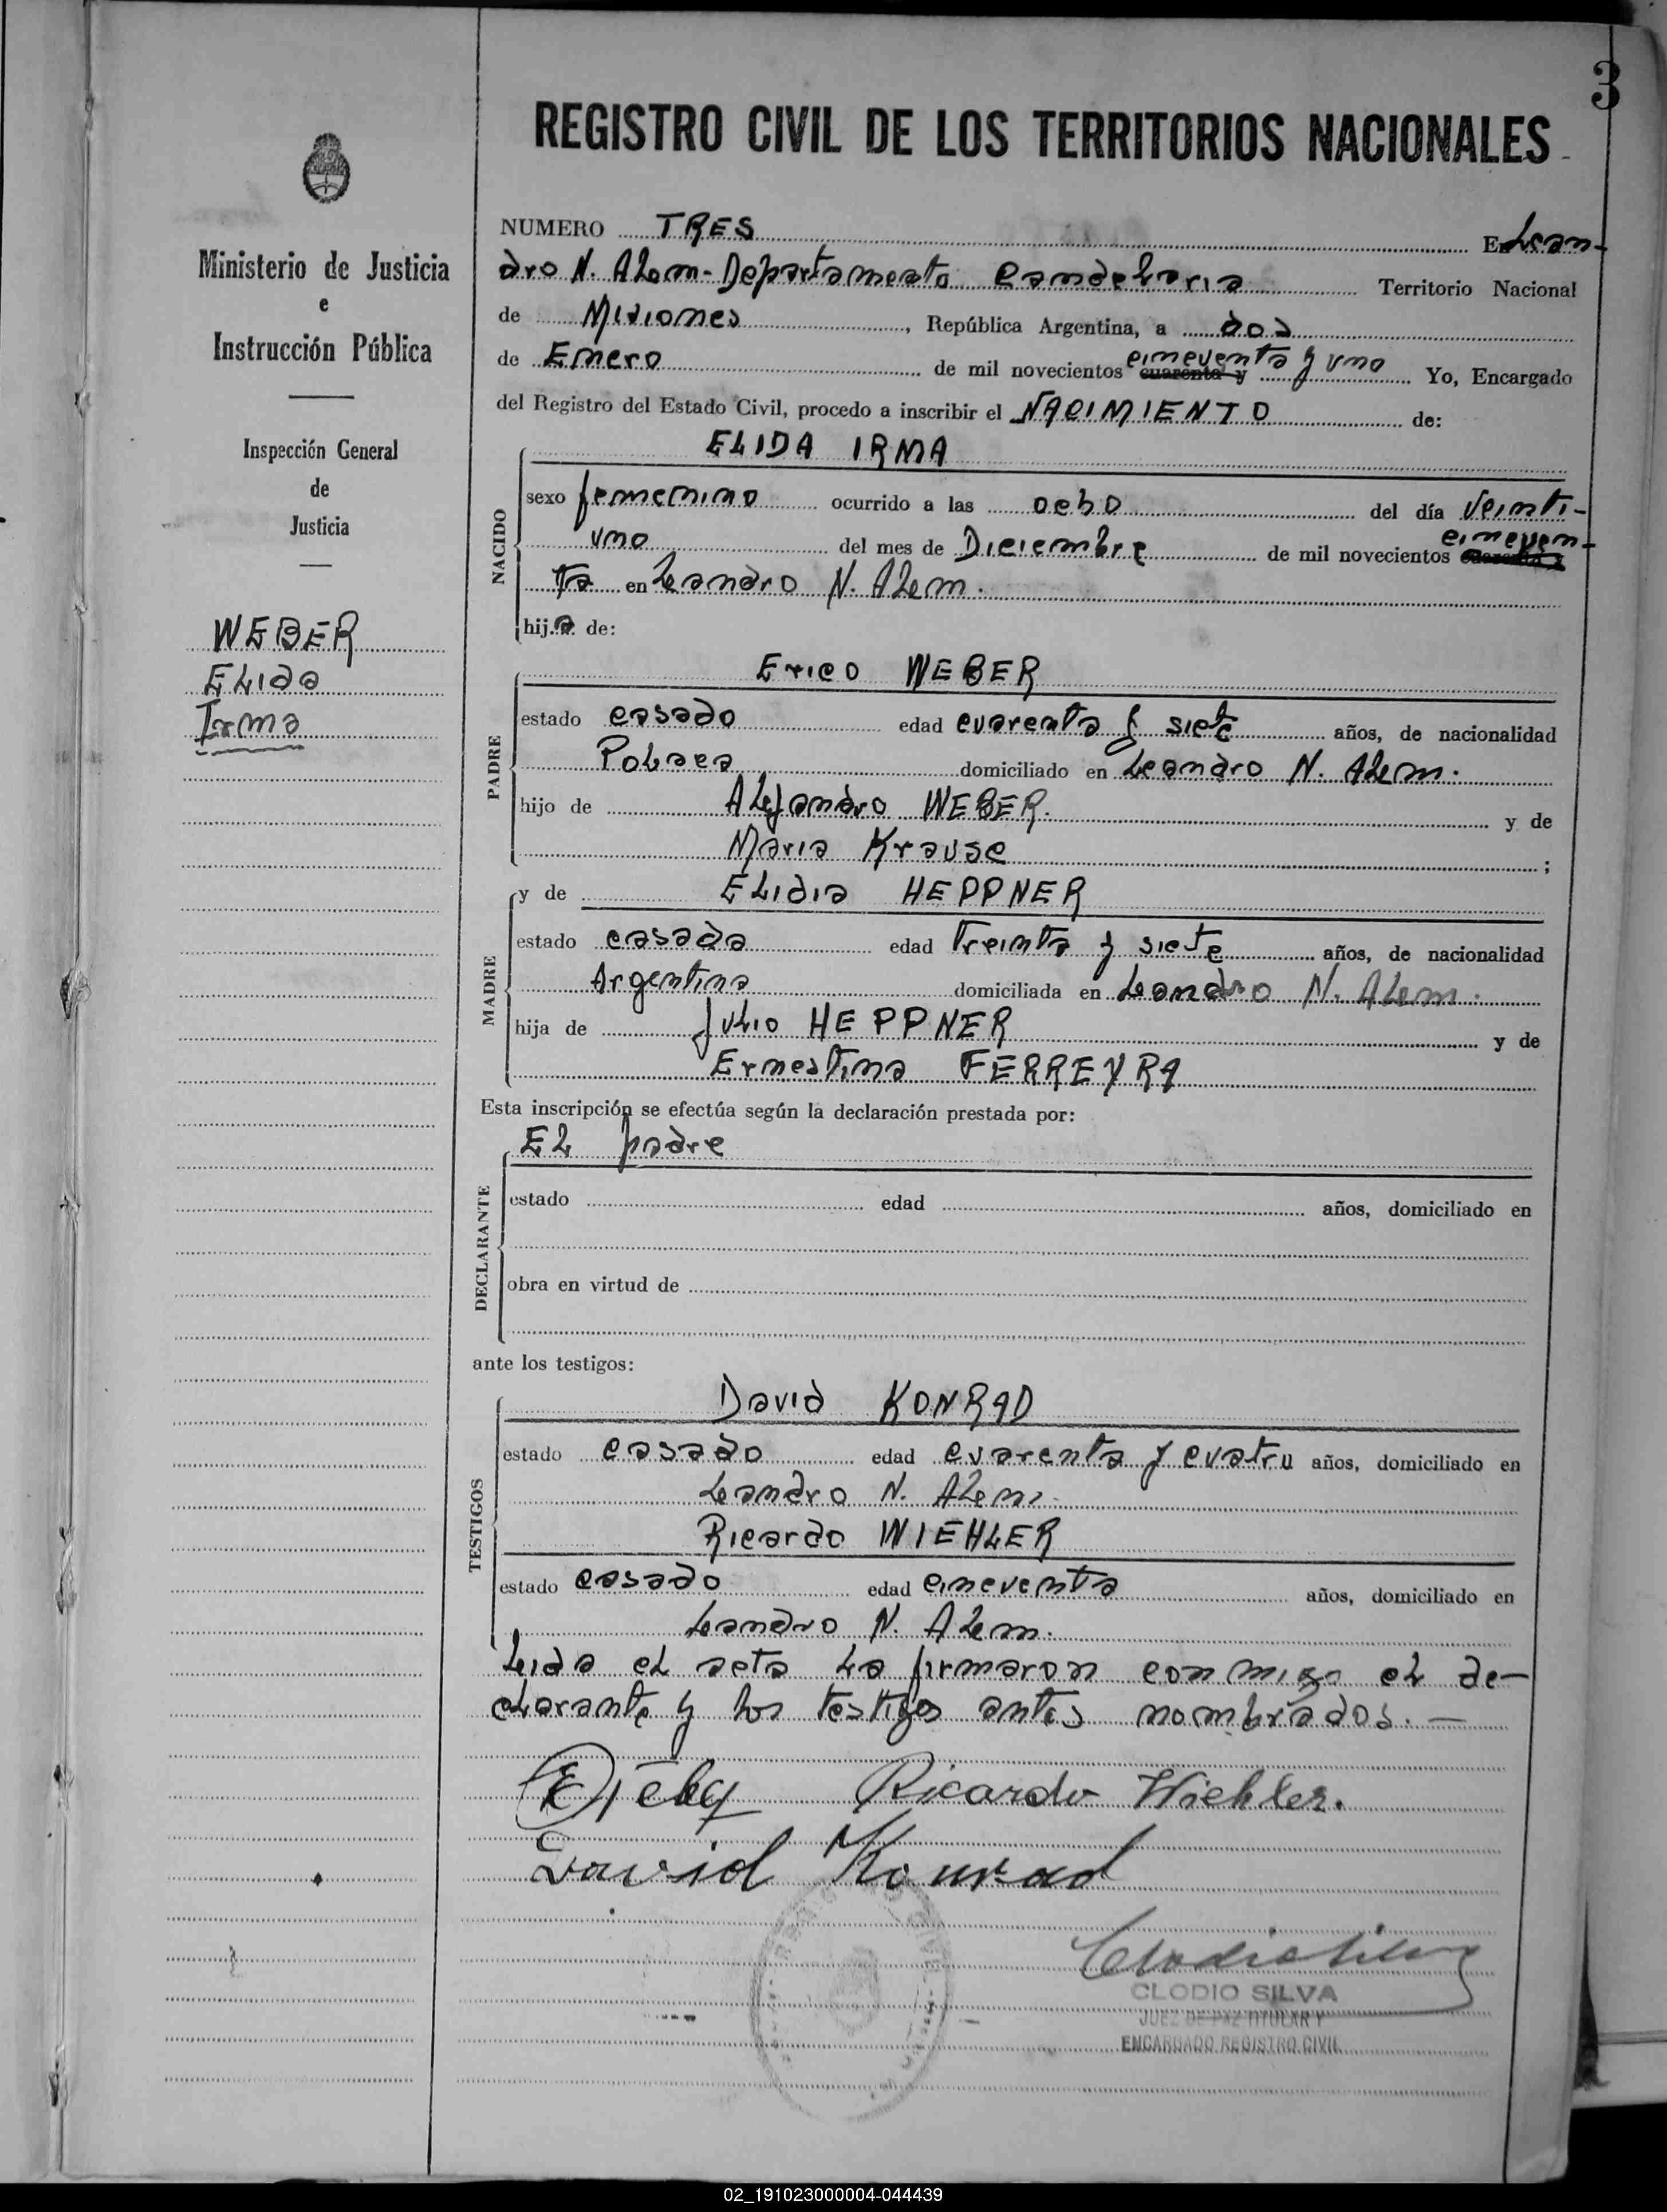 3
REGISTRO CIVIL DE LOS TERRITORIOS NACIONALES
Ministerio de Justicia
e
Instrucción Pública
Inspección General
de
Justicia
WEBER
ELida
Irma
NUMERO TRES En Lean-
dro N. ALem - Departamento Candelaria Territorio Nacional
de Misiones, República Argentina, a dos
de Enero de mil novecientos cuarenta y cincuenta y uno Yo, Encargado
del Registro del Estado Civil, procedo a inscribir el NACIMIENTO de:
NACIDO
ELIDA IRMA
sexo femenino ocurrido a las ocho del día Veinti-
uno del mes de Diciembre de mil novecientos cincuen-
ta en Leandro N. ALem.
hija de:
PADRE
Erico WEBER
estado casado edad cuarenta y siete años, de nacionalidad
Polaca domiciliado en Leandro N. ALem.
hijo de ALejandro WEBER. y de
Maria Krause ;
MADRE
y de ELidia HEPPNER
estado casada edad Treinta y siete años, de nacionalidad
Argentina domiciliada en Leandro N. ALem.
hija de Julio HEPPNER y de
Ernestina FERREYRA
Esta inscripción se efectúa según la declaración prestada por:
DECLARANTE
EL padre
estado edad años, domiciliado en
obra en virtud de
ante los testigos:
TESTIGOS
David KONRAD
estado casado edad cuarenta y cuatro años, domiciliado en
Leandro N. ALem.
Ricardo WIEHLER
estado casado edad cincuenta años, domiciliado en
Leandro N. ALem.
Leida el acta La firmaron conmigo el de-
clarante y los testigos antes nombrados. —
Ricardo Wiehler.
David Konrad
Clodio Silva
CLODIO SILVA
JUEZ DE PAZ TITULAR Y
ENCARGADO REGISTRO CIVIL
02_191023000004-044439